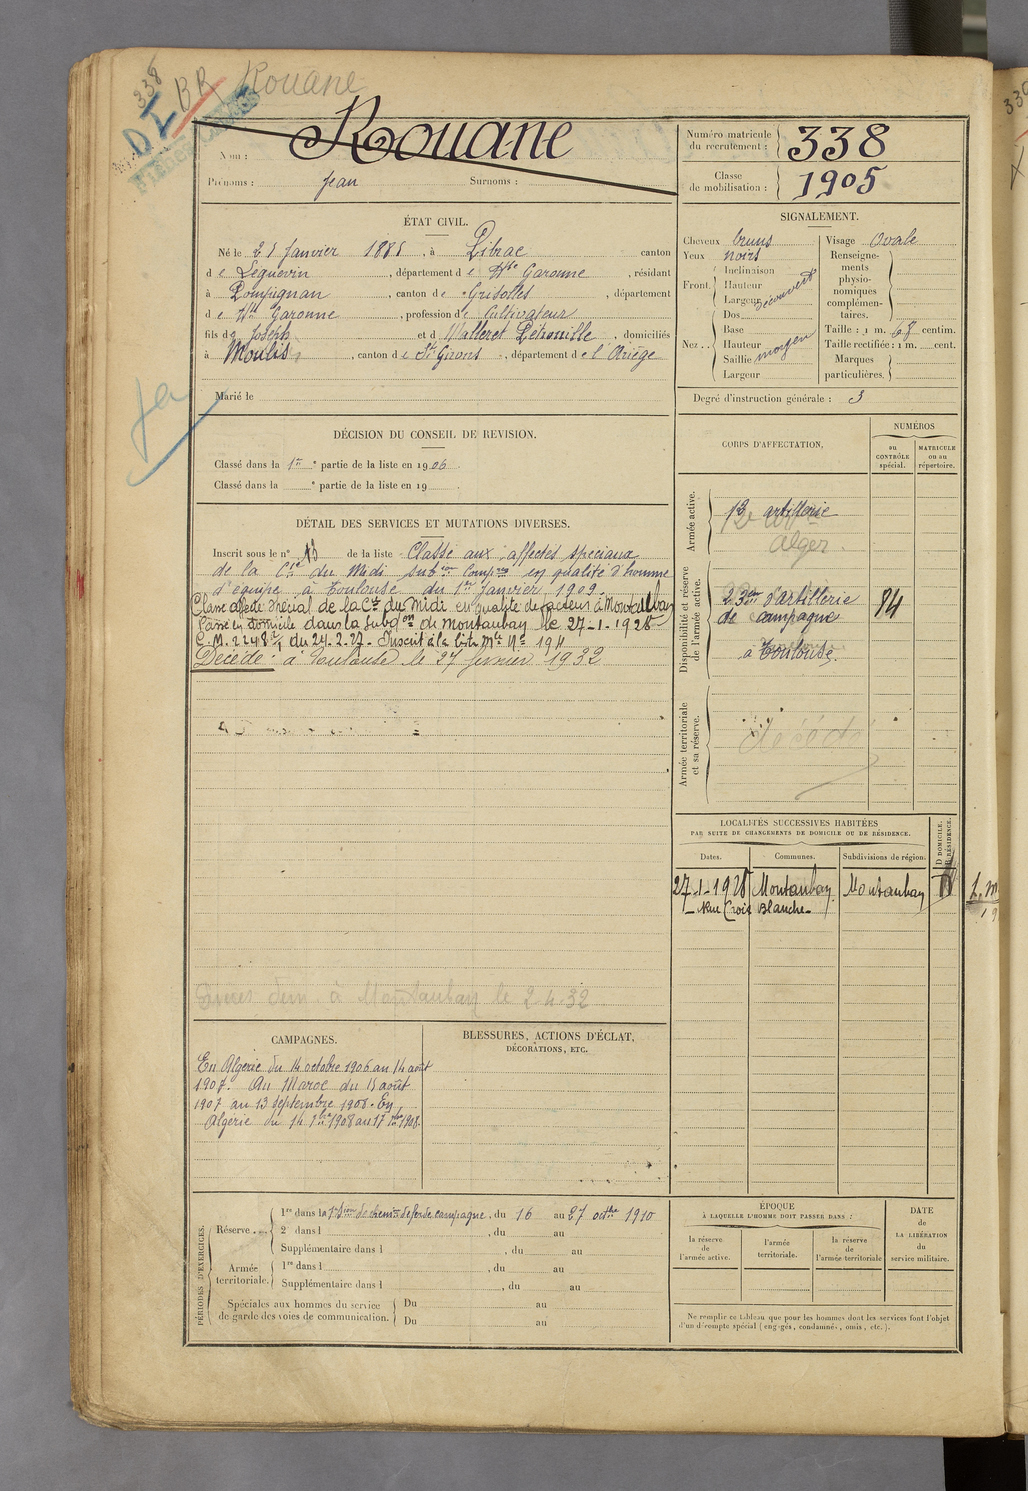 338
BR Rouane
DI
Nom : Rouane
Prénoms : Jean Surnoms :
Numéro matricule du recrutement : 338
Classe de mobilisation : 1905
ÉTAT CIVIL.
Né le 25 Janvier 1885, à Pibrac canton
de Léguevin, département de Hte Garonne, résidant
à Pompignan, canton de Grisolles, département
de Hte Garonne, profession de Cultivateur
fils de Joseph et de Petronille, domiciliés
à Moulis, canton de St Girons, département de l'Ariège
Marié le
SIGNALEMENT.
Cheveux bruns
Yeux noirs
Front. Inclinaison
Hauteur
Largeur découvert
Nez. Dos
Base
Hauteur moyen
Saillie
Largeur
Visage Ovale
Renseignements physionomiques complémentaires.
Taille : 1 m. 68 centim.
Taille rectifiée : 1 m. cent.
Marques particulières.
Degré d'instruction générale : 3
DÉCISION DU CONSEIL DE REVISION.
Classé dans la 1re partie de la liste en 1906
Classé dans la e partie de la liste en 19
DÉTAIL DES SERVICES ET MUTATIONS DIVERSES.
Inscrit sous le n° 13 de la liste Classé aux affectés spéciaux
de la Cie du Midi subon Compons en qualité d'homme
d'équipe à Toulouse du 1er Janvier 1909.
Classé affecté spécial de la Cie du Midi en qualité de facteur à Montauban
Passé en domicile dans la subdon de Montauban le 27-1-1928
C.M. 2248 du 24.2.27 - Inscrit à la liste Mle No 1911
Décédé : à Toulouse le 27 février 1932
à Montauban le 2-4-32
CORPS D'AFFECTATION.
NUMÉROS
au CONTRÔLE spécial.
MATRICULE ou au répertoire.
Armée active.
13 artillerie
Alger
Disponibilité et réserve de l'armée active.
23eme d'artillerie
de campagne 84
à Toulouse.
Armée territoriale et sa réserve.
décédé
LOCALITÉS SUCCESSIVES HABITÉES
PAR SUITE DE CHANGEMENTS DE DOMICILE OU DE RÉSIDENCE.
Dates. Communes. Subdivisions de région. D DOMICILE. R RÉSIDENCE.
27-1-1928 Montauban Montauban D
Rue Croix Blanche
CAMPAGNES.
En Algérie du 14 octobre 1906 au 14 août
1907. Au Maroc du 15 août
1907 au 13 septembre 1908. En
Algérie du 14 7bre 1908 au 17 1908.
BLESSURES, ACTIONS D'ÉCLAT,
DÉCORATIONS, ETC.
PÉRIODES D'EXERCICES.
Réserve
1re dans la de chemin de fer de campagne, du 16 au 27 octbre 1910
2 dans l , du au
Supplémentaire dans l , du au
Armée territoriale.
1re dans l , du au
Supplémentaire dans l , du au
Spéciales aux hommes du service de garde des voies de communication.
Du au
Du au
ÉPOQUE
À LAQUELLE L'HOMME DOIT PASSER DANS :
la réserve de l'armée active.
l'armée territoriale.
la réserve de l'armée territoriale
DATE de LA LIBÉRATION du service militaire.
Ne remplir ce tableau que pour les hommes dont les services font l'objet
d'un décompte spécial (engagés, condamnés, omis, etc.).